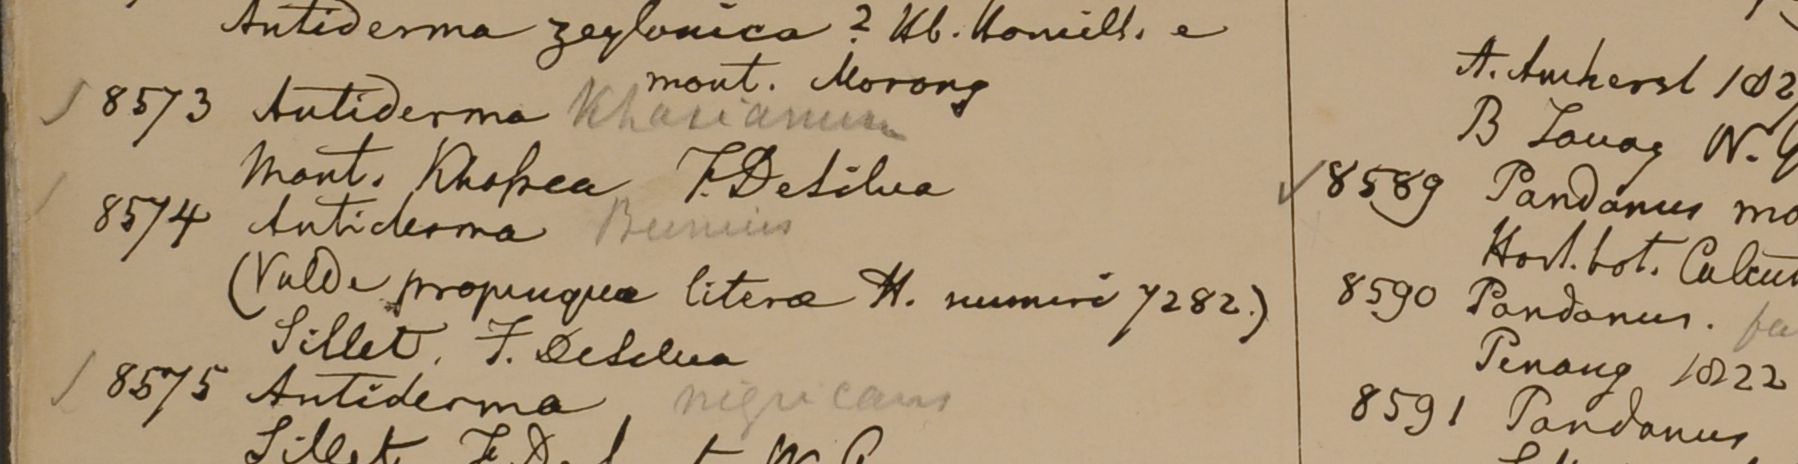 Antiderma zeylonica? Hb. Hamilt. e
mont. Morong
8573 Antiderma Khasianum
Mont. Khasea F. DeSilva
8574 Antiderma Bunius
(Valde propinqua literæ H. numeri 7282.)
Sillet, F. DeSilva
8575 Antiderma nigricans
Sillet
A. Amherst 182
B Tavoy W. G
8589 Pandanus mo
Hort. bot. Calcut
8590 Pandanus. fa
Penang 1822
8591 Pandanus